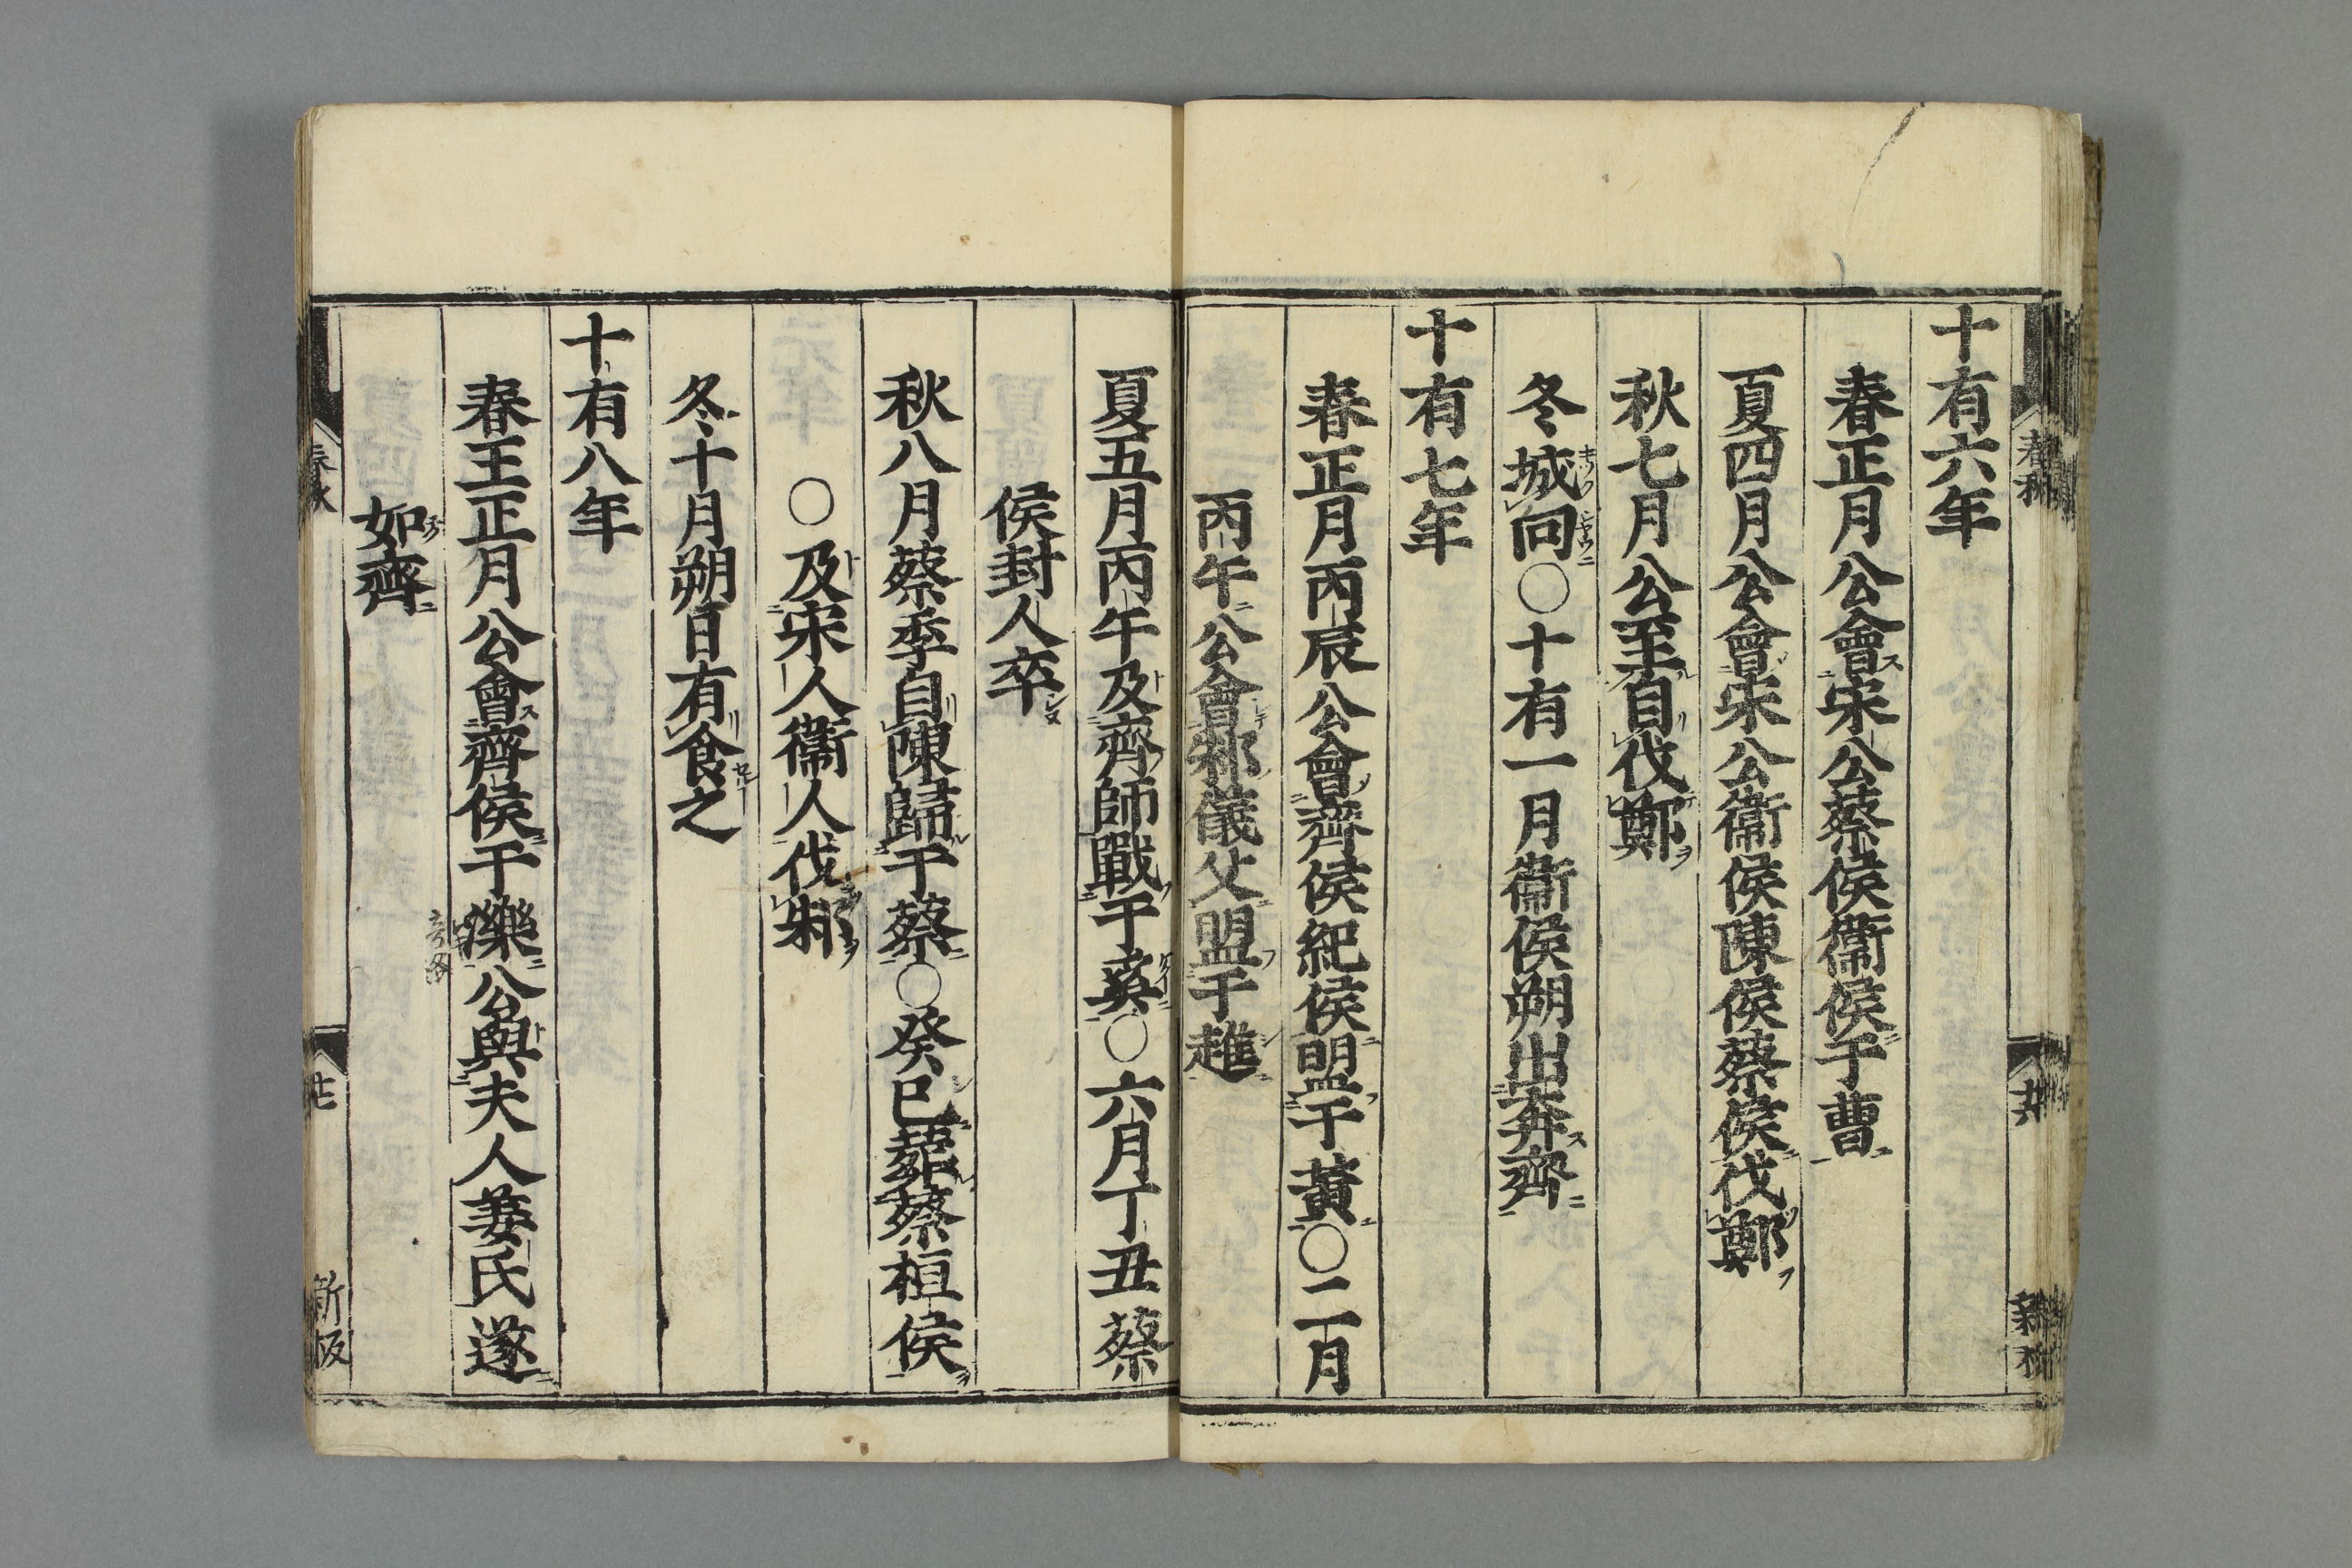 十有六年
春正月公會宋公蔡侯衞侯于曹
夏四月公會宋公衞侯陳侯蔡侯伐鄭
秋七月公至自伐鄭
冬城向○十有一月衞侯朔出奔齊
十有七年
春正月丙辰公會齊侯紀侯盟于黃○二月
丙午公會邾儀父盟于趡
夏五月丙午及齊師戰于奚○六月丁丑蔡
侯封人卒
秋八月蔡季自陳歸于蔡○癸巳葬蔡桓侯
○及宋人衞人伐邾
冬十月朔日有食之
十有八年
春王正月公會齊侯于濼公與夫人姜氏遂
如齊
春秋
新板